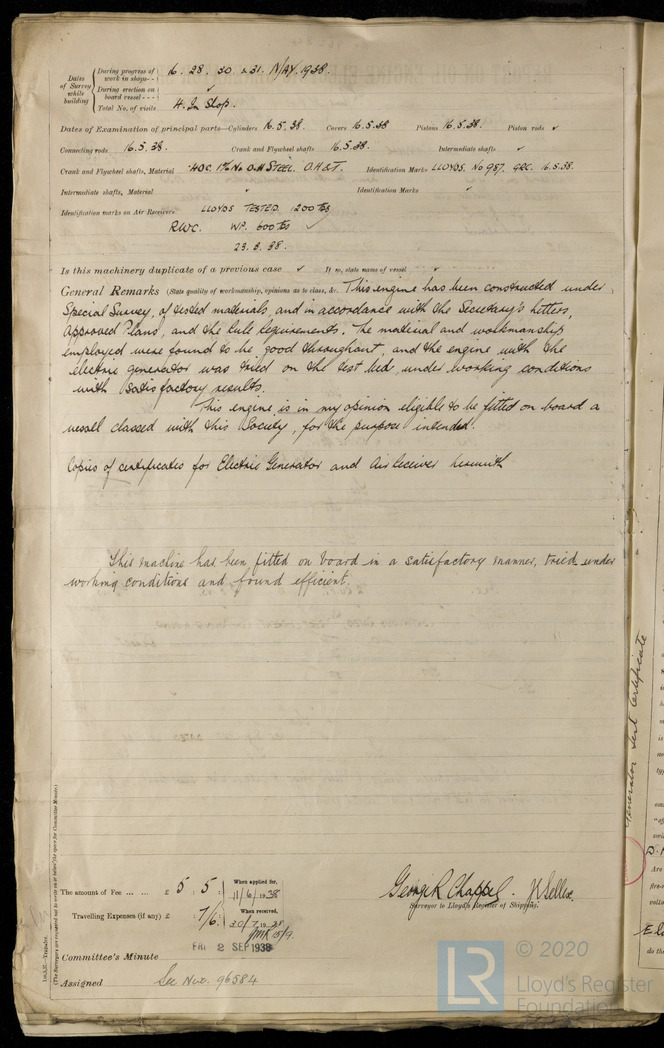 Dates of Survey while building
During progress of work in shops - - 16. 28. 30. & 31. MAY. 1938.
During erection on board vessel - - - ✓
Total No. of visits 4. In Shop.
Dates of Examination of principal parts—Cylinders 16.5.38. Covers 16.5.38 Pistons 16.5.38. Piston rods ✓
Connecting rods 16.5.38. Crank and Flywheel shafts 16.5.38. Intermediate shafts ✓
Crank and Flywheel shafts, Material O.H. STEEL. O.H & T. Identification Marks LLOYDS. No 987. GRC. 16.5.38.
Intermediate shafts, Material ✓ Identification Marks ✓
Identification marks on Air Receivers LLOYDS TESTED. 1200 lbs
RWC. WP. 600 lbs ✓
23.3.38.
Is this machinery duplicate of a previous case ✓ If so, state name of vessel ✓
General Remarks (State quality of workmanship, opinions as to class, &c. This engine has been constructed under
Special Survey, of tested materials, and in accordance with the Secretary's letters,
Approved Plans, and the Rule Requirements. The material and workmanship
employed were found to be good throughout, and the engine with the
electric generator was tried on the test bed, under working conditions
with satisfactory results.
This engine is in my opinion eligible to be fitted on board a
vessel classed with this Society, for the purpose intended.
Copies of certificates for Electric Generator and Air Receiver herewith
This machine has been fitted on board in a satisfactory manner, tried under
working conditions and found efficient.
The amount of Fee ... ... £ 5 : 5 : When applied for, 11/6/1938
Travelling Expenses (if any) £ : 7/6 : When received, 30/7/1938
George R Chappel.
Surveyor to Lloyd's Register of Shipping.
Committee's Minute FRI 2 SEP 1938
Assigned See Nwc. 96584
(The Surveyors are requested not to write on or below the space for Committee Minute.)
Generator Test Certificate
© 2020
LR
Lloyd's Register
Foundation